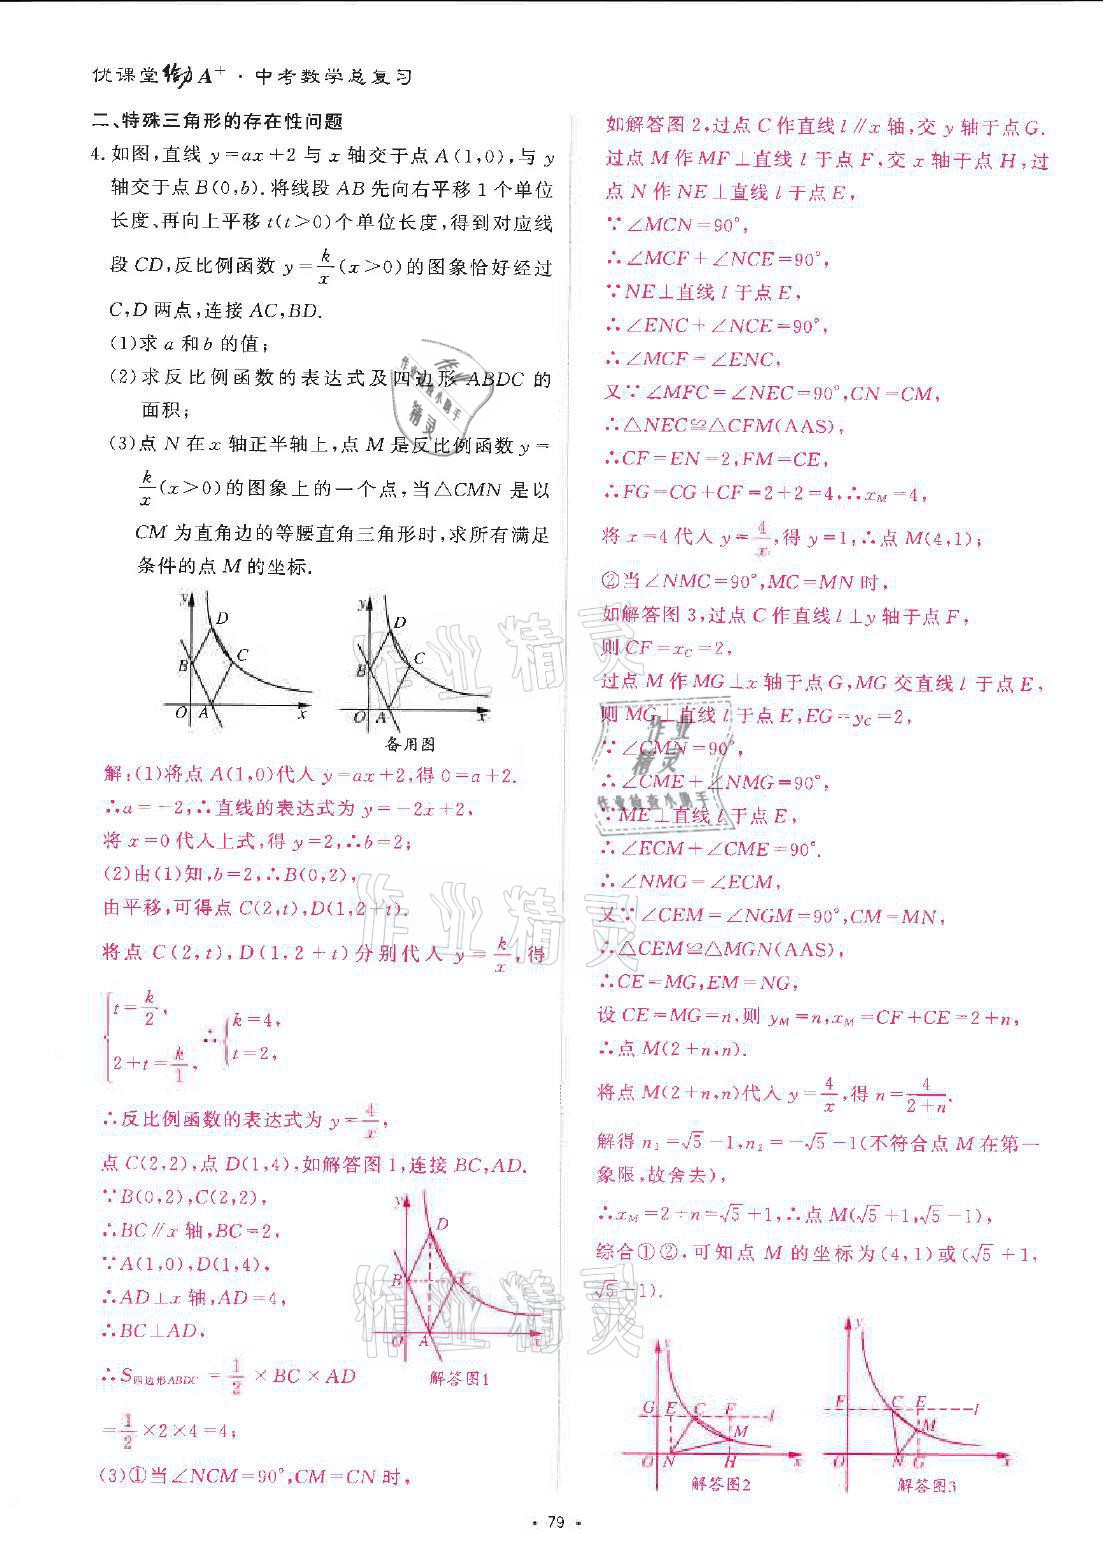 优课堂给力A⁺·中考数学总复习
二、特殊三角形的存在性问题
4.如图,直线 y=ax+2 与 x 轴交于点 A(1,0),与 y
轴交于点 B(0,b).将线段 AB 先向右平移 1 个单位
长度、再向上平移 t(t>0)个单位长度,得到对应线
段 CD,反比例函数 y=k/x(x>0)的图象恰好经过
C,D 两点,连接 AC,BD.
(1)求 a 和 b 的值;
(2)求反比例函数的表达式及四边形 ABDC 的
面积;
(3)点 N 在 x 轴正半轴上,点 M 是反比例函数 y=
k/x(x>0)的图象上的一个点,当△CMN 是以
CM 为直角边的等腰直角三角形时,求所有满足
条件的点 M 的坐标.
y D B C O A x
y D B C O A x
备用图
解:(1)将点 A(1,0)代入 y=ax+2,得 0=a+2.
∴a=-2,∴直线的表达式为 y=-2x+2,
将 x=0 代入上式,得 y=2,∴b=2;
(2)由(1)知,b=2,∴B(0,2),
由平移,可得点 C(2,t),D(1,2+t).
将点 C(2,t),D(1,2+t)分别代入 y=k/x,得
{t=k/2, 2+t=k/1, ∴{k=4, t=2,
∴反比例函数的表达式为 y=4/x,
点 C(2,2),点 D(1,4),如解答图 1,连接 BC,AD.
∵B(0,2),C(2,2),
∴BC∥x 轴,BC=2,
∵A(1,0),D(1,4),
∴AD⊥x 轴,AD=4,
∴BC⊥AD,
∴S四边形ABDC=1/2×BC×AD
=1/2×2×4=4;
y D B C O A x
解答图1
(3)①当∠NCM=90°,CM=CN 时,
如解答图 2,过点 C 作直线 l∥x 轴,交 y 轴于点 G.
过点 M 作 MF⊥直线 l 于点 F,交 x 轴于点 H,过
点 N 作 NE⊥直线 l 于点 E,
∵∠MCN=90°,
∴∠MCF+∠NCE=90°,
∵NE⊥直线 l 于点 E,
∴∠ENC+∠NCE=90°,
∴∠MCF=∠ENC,
又∵∠MFC=∠NEC=90°,CN=CM,
∴△NEC≌△CFM(AAS),
∴CF=EN=2,FM=CE,
∴FG=CG+CF=2+2=4,∴x_M=4,
将 x=4 代入 y=4/x,得 y=1,∴点 M(4,1);
②当∠NMC=90°,MC=MN 时,
如解答图 3,过点 C 作直线 l⊥y 轴于点 F,
则 CF=x_C=2,
过点 M 作 MG⊥x 轴于点 G,MG 交直线 l 于点 E,
则 MG⊥直线 l 于点 E,EG=y_C=2,
∵∠CMN=90°,
∴∠CME+∠NMG=90°,
∵ME⊥直线 l 于点 E,
∴∠ECM+∠CME=90°.
∴∠NMG=∠ECM,
又∵∠CEM=∠NGM=90°,CM=MN,
∴△CEM≌△MGN(AAS),
∴CE=MG,EM=NG,
设 CE=MG=n,则 y_M=n,x_M=CF+CE=2+n,
∴点 M(2+n,n).
将点 M(2+n,n)代入 y=4/x,得 n=4/(2+n).
解得 n₁=√5-1,n₂=-√5-1(不符合点 M 在第一
象限,故舍去),
∴x_M=2+n=√5+1,∴点 M(√5+1,√5-1),
综合①②,可知点 M 的坐标为(4,1)或(√5+1,
√5-1).
y G E C F l M O N H x
解答图2
y F C E l M O N G x
解答图3
作业精灵
作业检查小助手
精灵
作业精灵
作业检查小助手
作业精灵
作业精灵
作业精灵
· 79 ·